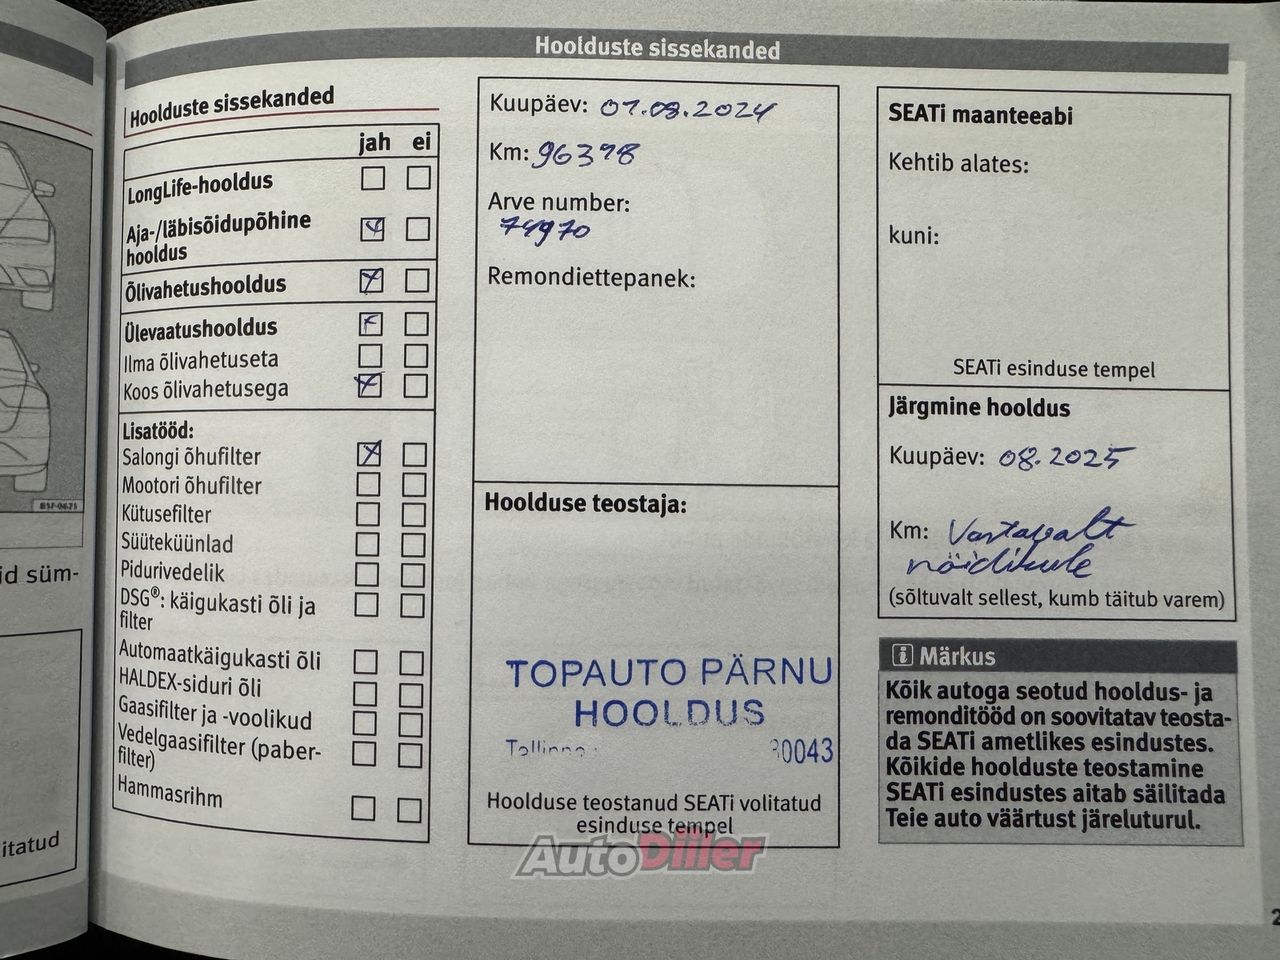 Hoolduste sissekanded
Hoolduste sissekanded
jah ei
LongLife-hooldus
Aja-/läbisõidupõhine
hooldus
Õlivahetushooldus
Ülevaatushooldus
Ilma õlivahetuseta
Koos õlivahetusega
Lisatööd:
Salongi õhufilter
Mootori õhufilter
Kütusefilter
Süüteküünlad
Pidurivedelik
DSG®: käigukasti õli ja
filter
Automaatkäigukasti õli
HALDEX-siduri õli
Gaasifilter ja -voolikud
Vedelgaasifilter (paber-
filter)
Hammasrihm
Kuupäev: 07.08.2024
Km: 96398
Arve number:
74970
Remondiettepanek:
Hoolduse teostaja:
TOPAUTO PÄRNU
HOOLDUS
80043
Hoolduse teostanud SEATi volitatud
esinduse tempel
SEATi maanteeabi
Kehtib alates:
kuni:
SEATi esinduse tempel
Järgmine hooldus
Kuupäev: 08.2025
Km: Vastavalt
näidikule
(sõltuvalt sellest, kumb täitub varem)
Märkus
Kõik autoga seotud hooldus- ja
remonditööd on soovitatav teosta-
da SEATi ametlikes esindustes.
Kõikide hoolduste teostamine
SEATi esindustes aitab säilitada
Teie auto väärtust järeluturul.
id süm-
itatud
AutoDiiler